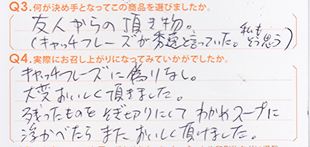 Q3.何が決め手となってこの商品を選びましたか。
友人からの頂き物。
(キャッチフレーズが秀逸と言っていた。私もそう思う)
Q4.実際にお召し上がりになってみていかがでしたか。
キャッチフレーズに偽りなし。
大変おいしく頂きました。
残ったものをそぎ切りにしてわかめスープに
浮かべたらまたおいしく頂けました。